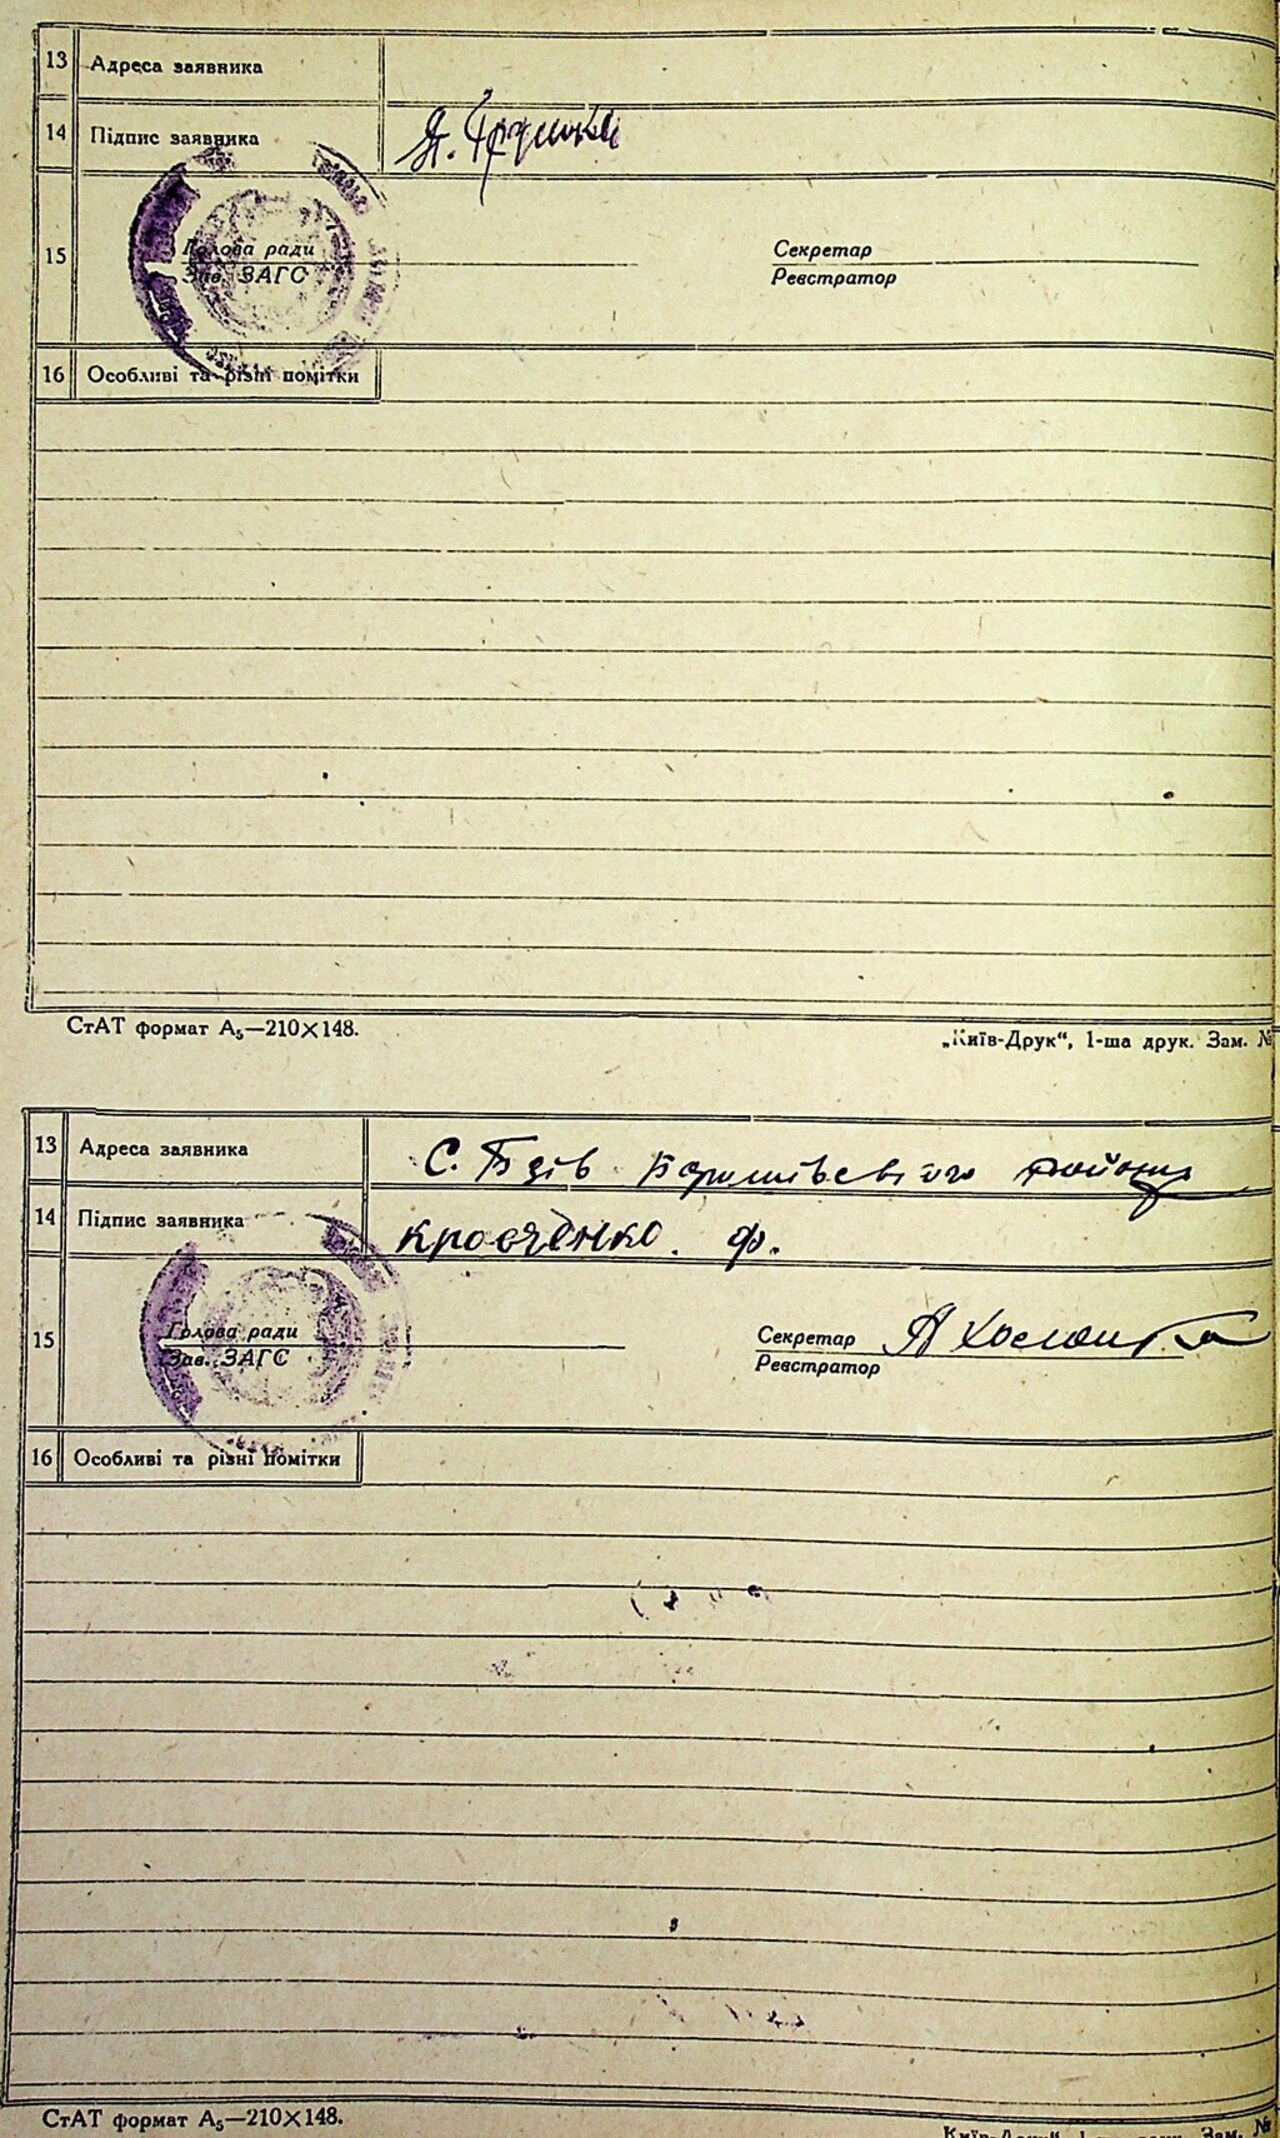 13 Адреса заявника
14 Підпис заявника
15 Голова ради Секретар
Зав. ЗАГС Реєстратор
16 Особливі та різні помітки
СтАТ формат А₅—210×148. „Київ-Друк“, 1-ша друк. Зам. №
13 Адреса заявника С.
14 Підпис заявника Кравченко. Ф.
15 Голова ради Секретар
Зав. ЗАГС Реєстратор
16 Особливі та різні помітки
СтАТ формат А₅—210×148. Київ-Друк“, Зам. №